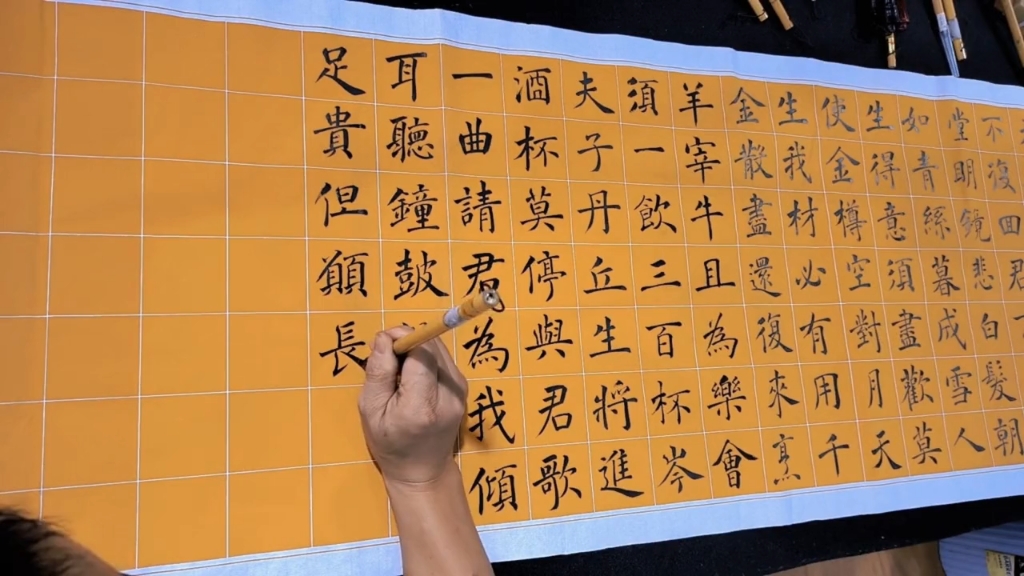 不復回君
堂明鏡悲白髮朝
如青絲暮成雪人
生得意須盡歡莫
使金樽空對月天
生我材必有用千
金散盡還復來烹
羊宰牛且為樂會
須一飲三百杯岑
夫子丹丘生將進
酒杯莫停與君歌
一曲請君為我傾
耳聽鐘鼓
足貴但願長